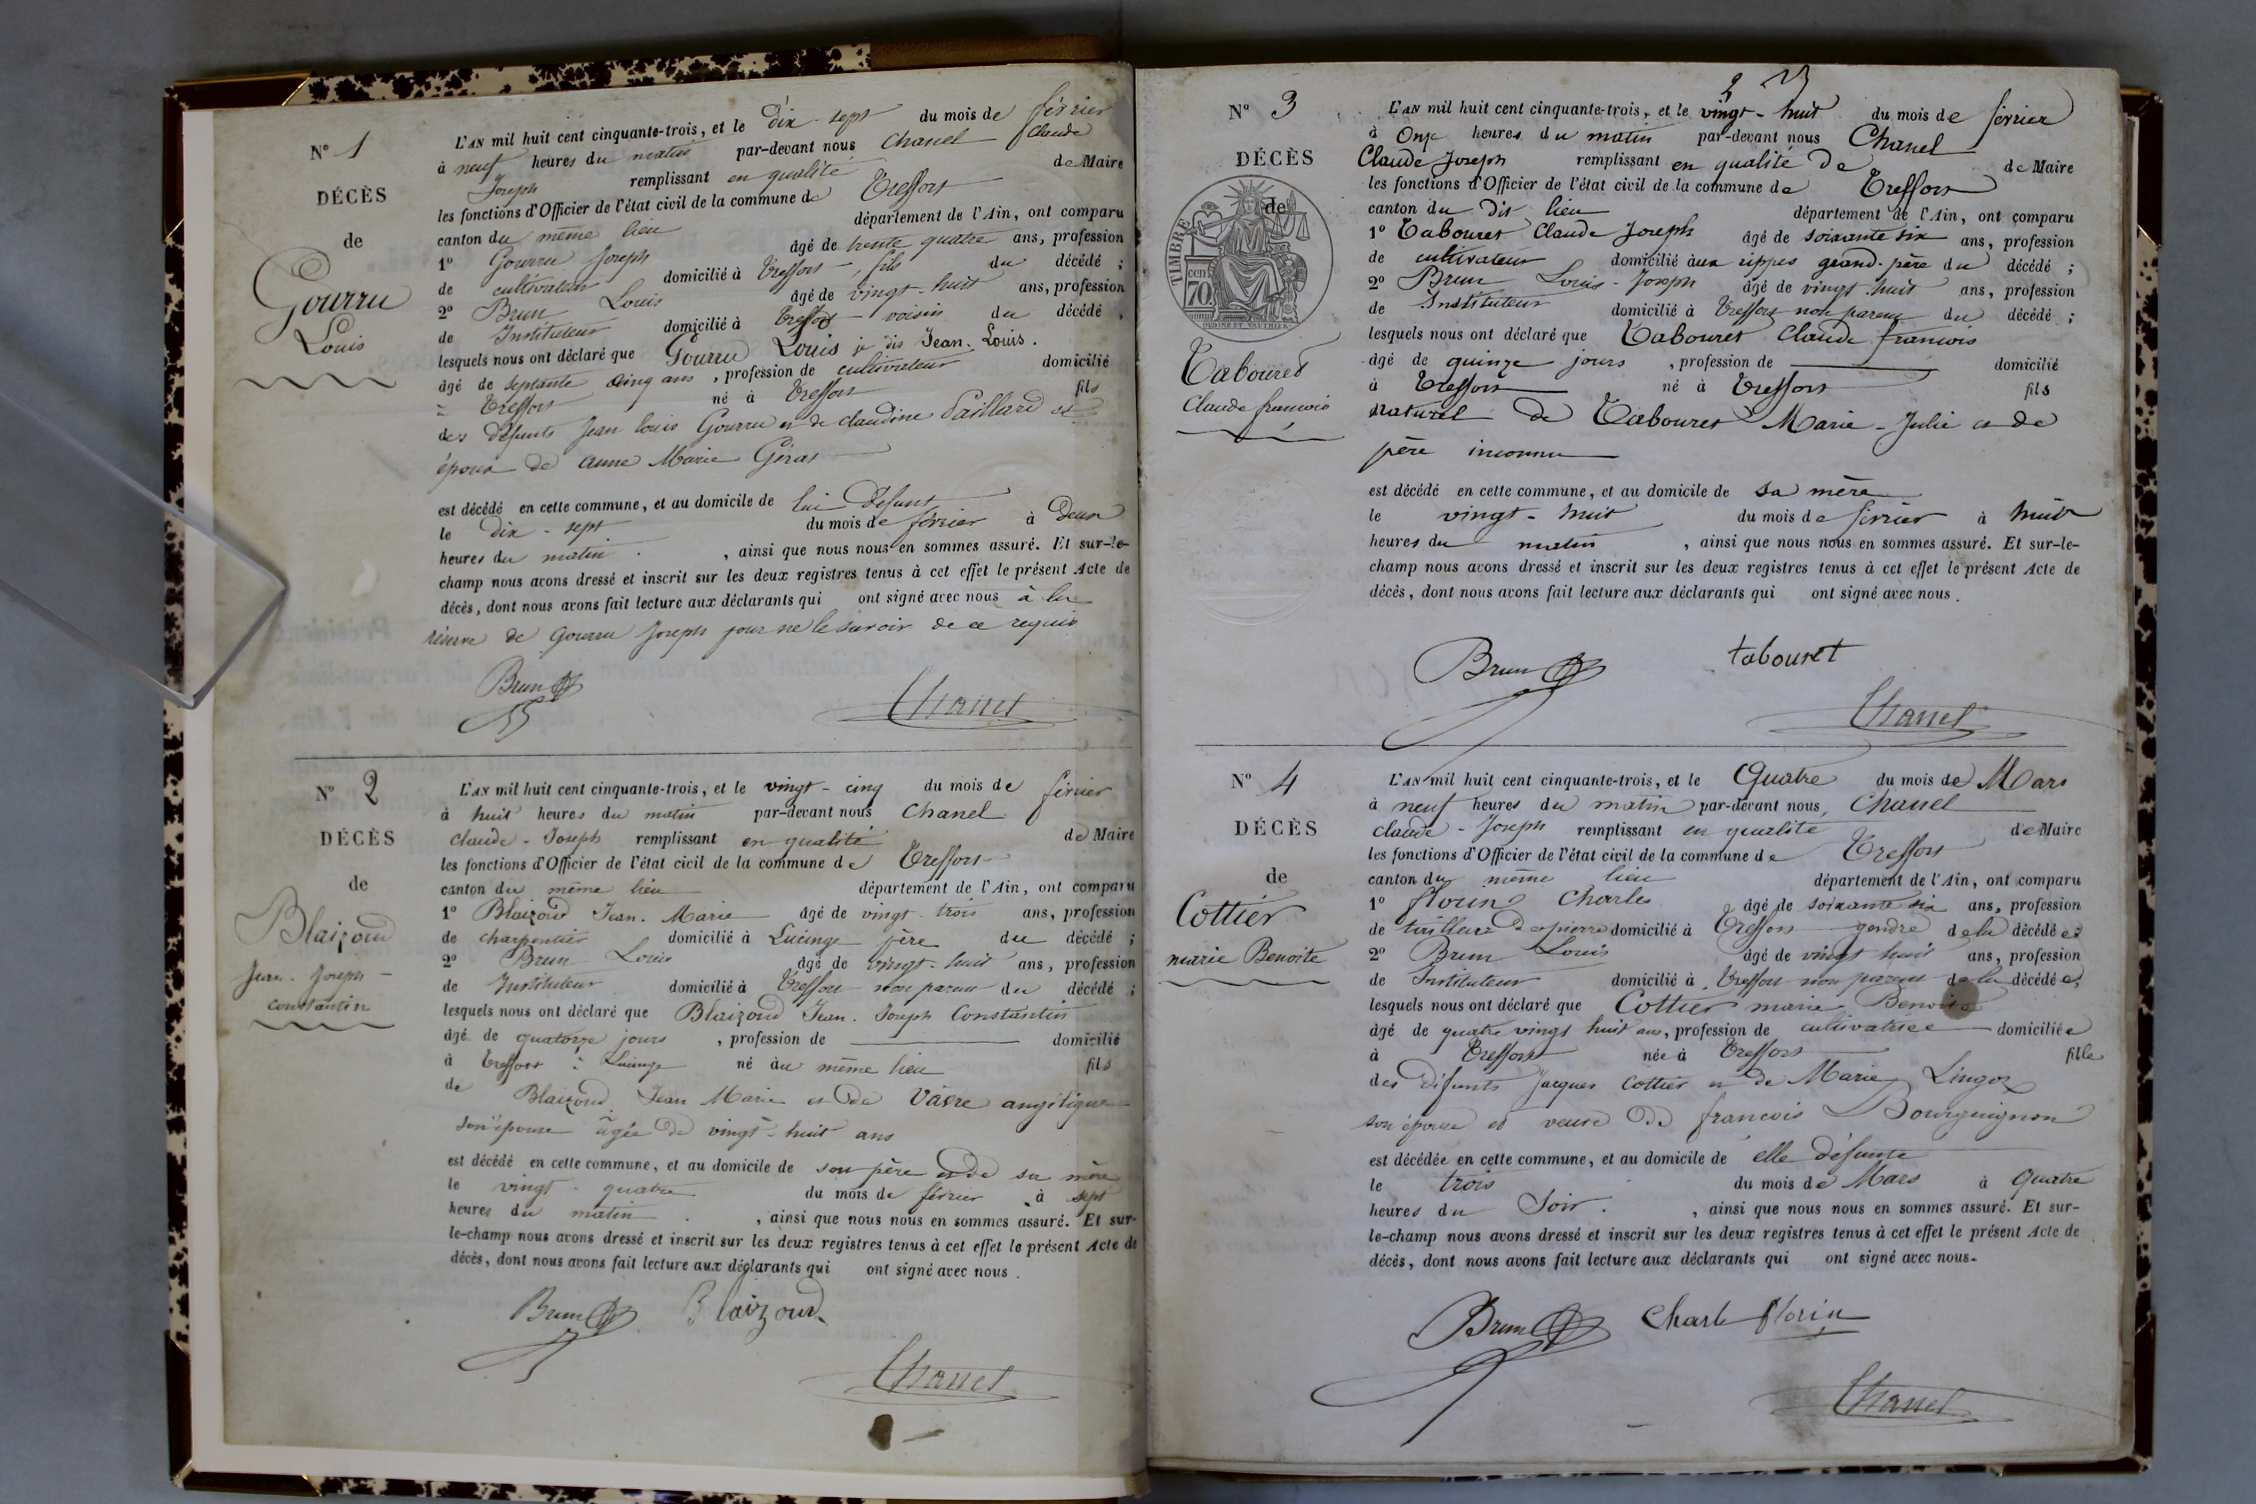 N° 1
DÉCÈS
de
Gourru
Louis
L'AN mil huit cent cinquante-trois, et le dix-sept du mois de février
à neuf heures du matin par-devant nous Chanel Claude
Joseph remplissant en qualité de Maire
les fonctions d'Officier de l'état civil de la commune de Treffort
canton du même lieu département de l'Ain, ont comparu
1° Gourru Joseph âgé de trente quatre ans, profession
de cultivateur domicilié à Treffort, fils du décédé ;
2° Brun Louis âgé de vingt-huit ans, profession
de Instituteur domicilié à Treffort voisin du décédé ,
lesquels nous ont déclaré que Gourru Louis je dis Jean-Louis.
âgé de septante cinq ans, profession de cultivateur domicilié
à Treffort né à Treffort fils
des défunts Jean Louis Gourru et de Claudine Paillard et
époux de Anne Marie Géras
est décédé en cette commune, et au domicile de lui défunt
le dix-sept du mois de février à Deux
heures du matin , ainsi que nous nous en sommes assuré. Et sur-le-
champ nous avons dressé et inscrit sur les deux registres tenus à cet effet le présent Acte de
décès, dont nous avons fait lecture aux déclarants qui ont signé avec nous à la
réserve de Gourru Joseph pour ne le savoir de ce requis
Brun
Chanel
N° 2
DÉCÈS
de
Blaizoud
Jean-Joseph-
constantin
L'AN mil huit cent cinquante-trois, et le vingt-cinq du mois de février
à huit heures du matin par-devant nous Chanel
Claude-Joseph remplissant en qualité de Maire
les fonctions d'Officier de l'état civil de la commune de Treffort
canton du même lieu département de l'Ain, ont comparu
1° Blaizoud Jean-Marie âgé de vingt-trois ans, profession
de charpentier domicilié à Lucinge père du décédé ;
2° Brun Louis âgé de vingt-huit ans, profession
de Instituteur domicilié à Treffort non parent du décédé ;
lesquels nous ont déclaré que Blaizoud Jean-Joseph Constantin
âgé de quatorze jours , profession de domicilié
à Treffort à Lucinge né au même lieu fils
de Blaizoud Jean Marie et de Vavre angélique
son épouse âgée de vingt-huit ans
est décédé en cette commune, et au domicile de son père et de sa mère
le vingt-quatre du mois de février à sept
heures du matin , ainsi que nous nous en sommes assuré. Et sur-
le-champ nous avons dressé et inscrit sur les deux registres tenus à cet effet le présent Acte de
décès, dont nous avons fait lecture aux déclarants qui ont signé avec nous.
Brun Blaizoud
Chanel
N° 3
DÉCÈS
de
TIMBRE
70 cen
Tabouret
Claude françois
L'AN mil huit cent cinquante-trois, et le vingt-huit du mois de février
à Onze heures du matin par-devant nous Chanel
Claude Joseph remplissant en qualité de de Maire
les fonctions d'Officier de l'état civil de la commune de Treffort
canton du dit lieu département de l'Ain, ont comparu
1° Tabouret Claude Joseph âgé de soixante six ans, profession
de cultivateur domicilié aux rippes grand-père du décédé ;
2° Brun Louis-Joseph âgé de vingt-huit ans, profession
de Instituteur domicilié à Treffort non parent du décédé ;
lesquels nous ont déclaré que Tabouret Claude françois
âgé de quinze jours , profession de domicilié
à Treffort né à Treffort fils
naturel de Tabouret Marie-Julie et de
père inconnu
est décédé en cette commune, et au domicile de sa mère
le vingt-huit du mois de février à huit
heures du matin , ainsi que nous nous en sommes assuré. Et sur-le-
champ nous avons dressé et inscrit sur les deux registres tenus à cet effet le présent Acte de
décès, dont nous avons fait lecture aux déclarants qui ont signé avec nous.
Brun tabouret
Chanel
N° 4
DÉCÈS
de
Cottier
marie Benoite
L'AN mil huit cent cinquante-trois, et le Quatre du mois de Mars
à neuf heures du matin par-devant nous, Chanel
claude-Joseph remplissant en qualité de Maire
les fonctions d'Officier de l'état civil de la commune de Treffort
canton du même lieu département de l'Ain, ont comparu
1° florin Charles âgé de soixante six ans, profession
de tailleur de pierre domicilié à Treffort gendre de la décédée
2° Brun Louis âgé de vingt huit ans, profession
de Instituteur domicilié à Treffort non parent de la décédée
lesquels nous ont déclaré que Cottier marie Benoite
âgé de quatre vingt huit ans, profession de cultivatrice domiciliée
à Treffort née à Treffort fille
des défunts Jacques Cottier et de Marie Lingoz
son épouse et veuve de françois Bourguignon
est décédée en cette commune, et au domicile de elle défunte
le trois du mois de Mars à Quatre
heures du Soir. , ainsi que nous nous en sommes assuré. Et sur-
le-champ nous avons dressé et inscrit sur les deux registres tenus à cet effet le présent Acte de
décès, dont nous avons fait lecture aux déclarants qui ont signé avec nous.
Brun Charle florin
Chanel